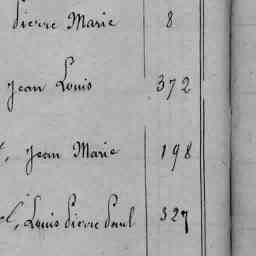 Pierre Marie 8
Jean Louis 372
Jean Marie 198
Louis Pierre Paul 327